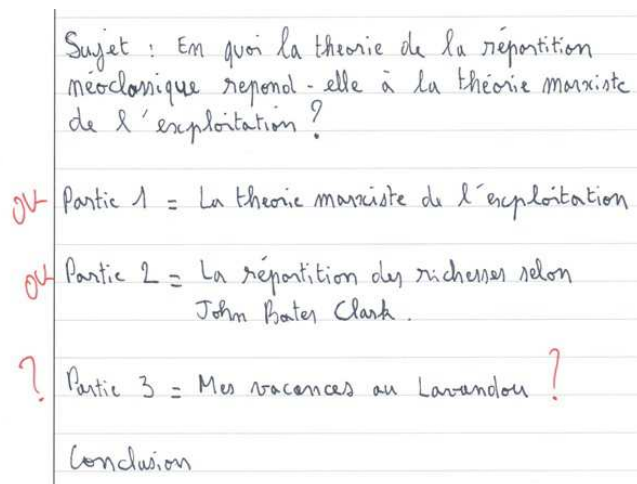 Sujet : En quoi la theorie de la répartition
néoclassique repond-elle à la théorie marxiste
de l'exploitation ?
OK Partie 1 = La theorie marxiste de l'exploitation
OK Partie 2 = La répartition des richesses selon
John Bates Clark.
? Partie 3 = Mes vacances au Lavandou ?
Conclusion